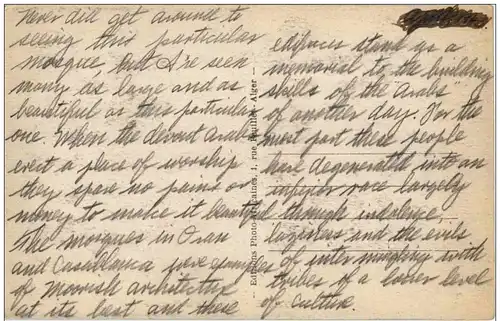 Never did get around to
seeing this particular
mosque but I've seen
many as large and as
beautiful as this particular
one. When the devout Arabs
erect a place of worship
they spare no pains or
money to make it beautiful
The mosques in Oran
and Casablanca were examples
of Moorish architecture
at its best and these
edifices stand as a
memorial to the building
skills of the Arabs
of another day. For the
most part these people
have degenerated into an
inferior race largely
through indolence,
laziness and the evils
of intermingling with
tribes of a lower level
of culture
Editions Photo Africaines, 1, rue Alger